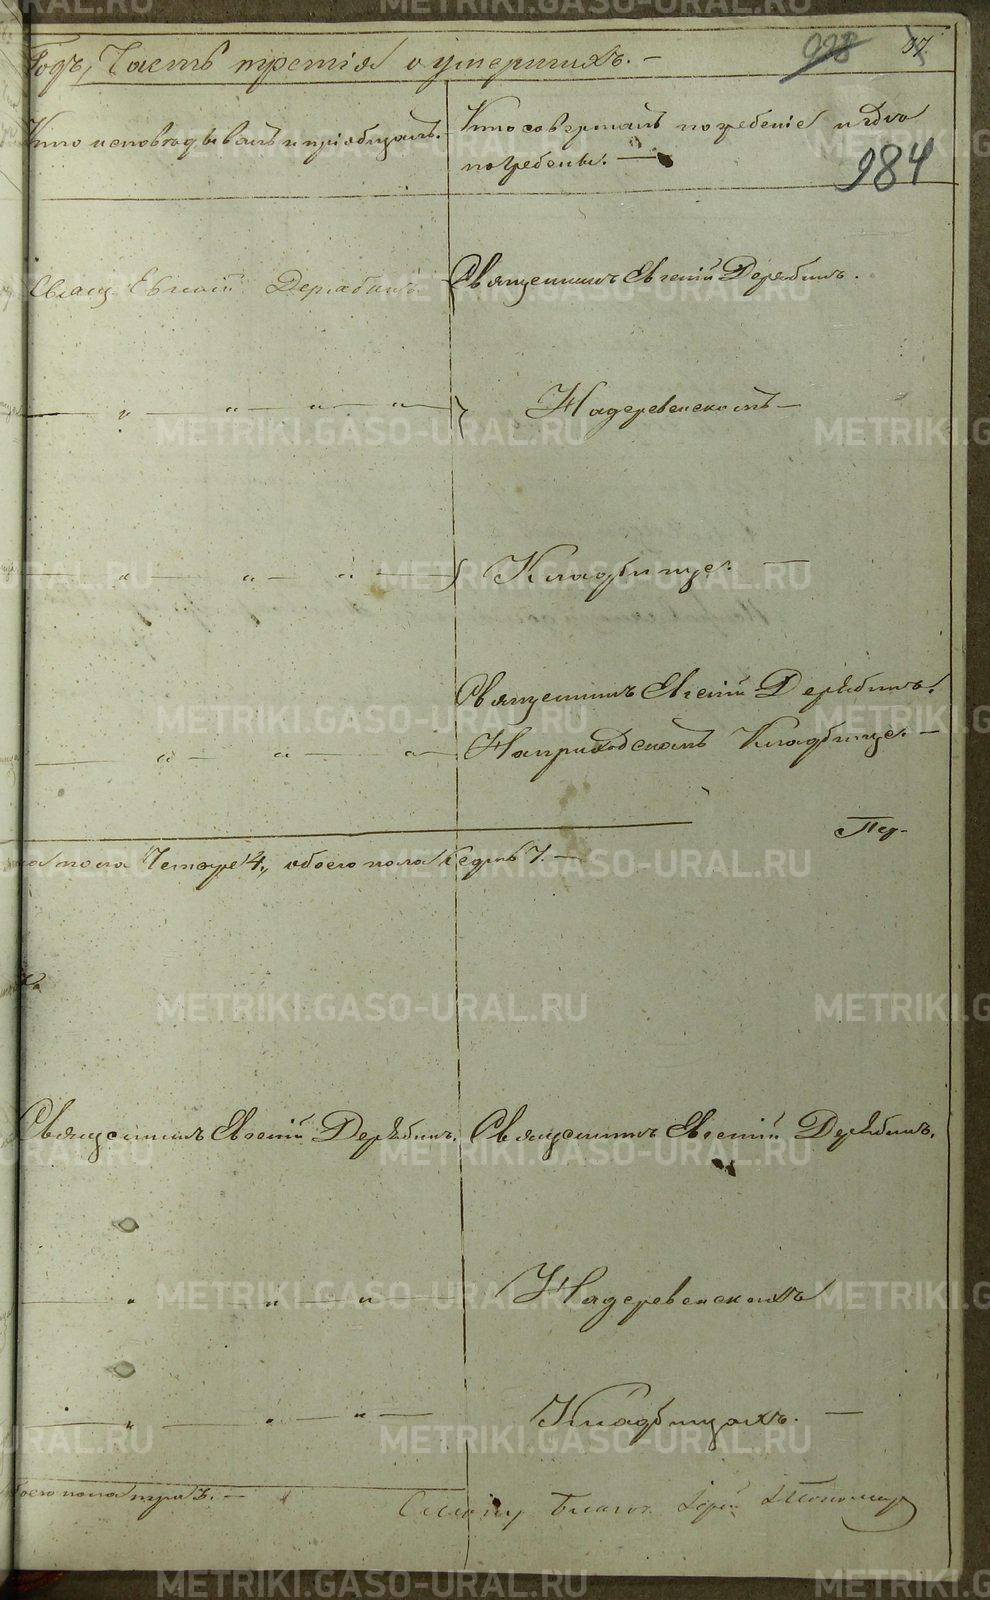 Годъ, Часть третія о умершихъ. —
098 97.
Кто исповѣдывалъ и пріобщалъ.
Кто совершалъ погребеніе и гдѣ
погребены. —
984
Священ. Евгеній Дерябинъ
Священникъ Евгеній Дерябинъ.
— „ — „ — „ — „ —
На деревенскомъ —
— „ — „ — „ —
Кладбище. —
Священникъ Евгеній Дерябинъ.
— „ — „ — „ —
На приходскомъ Кладбище. —
пола Четыре 4, обоего пола седмь 7. —
Священникъ Евгеній Дерябинъ.
Священникъ Евгеній Дерябинъ.
— „ — „ — „ —
На деревенскихъ
— „ — „ — „ —
Кладбищахъ. —
обоего пола три 3. —
METRIKI.GASO-URAL.RU